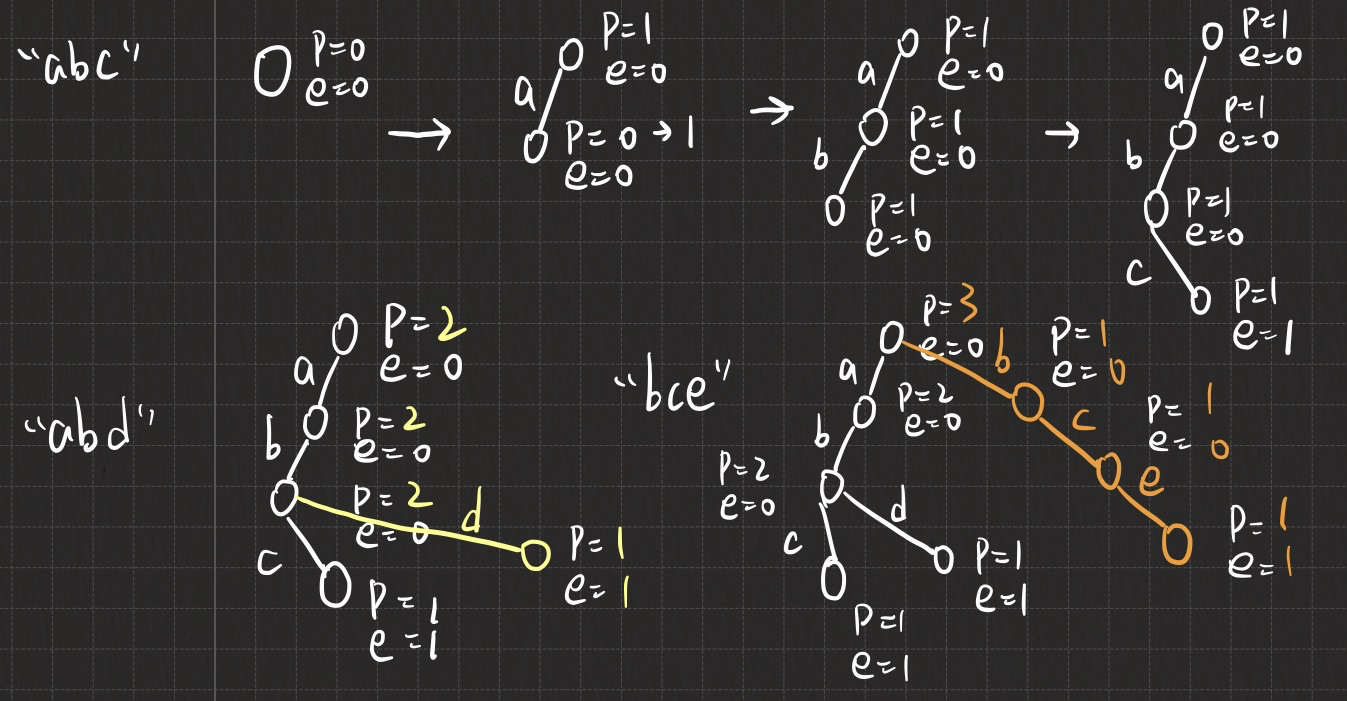 "abc"
P=0
e=0
→
P=1
e=0
a
P=0→1
e=0
→
P=1
e=0
a
P=1
e=0
b
P=1
e=0
→
P=1
e=0
a
P=1
e=0
b
P=1
e=0
c
P=1
e=1
"abd"
P=2
e=0
a
P=2
e=0
b
P=2
e=0
d
P=1
e=1
c
P=1
e=1
"bce"
P=3
e=0
b
P=1
e=0
a
P=2
e=0
c
P=1
e=0
b
P=2
e=0
e
d
P=1
e=1
c
P=1
e=1
P=1
e=1